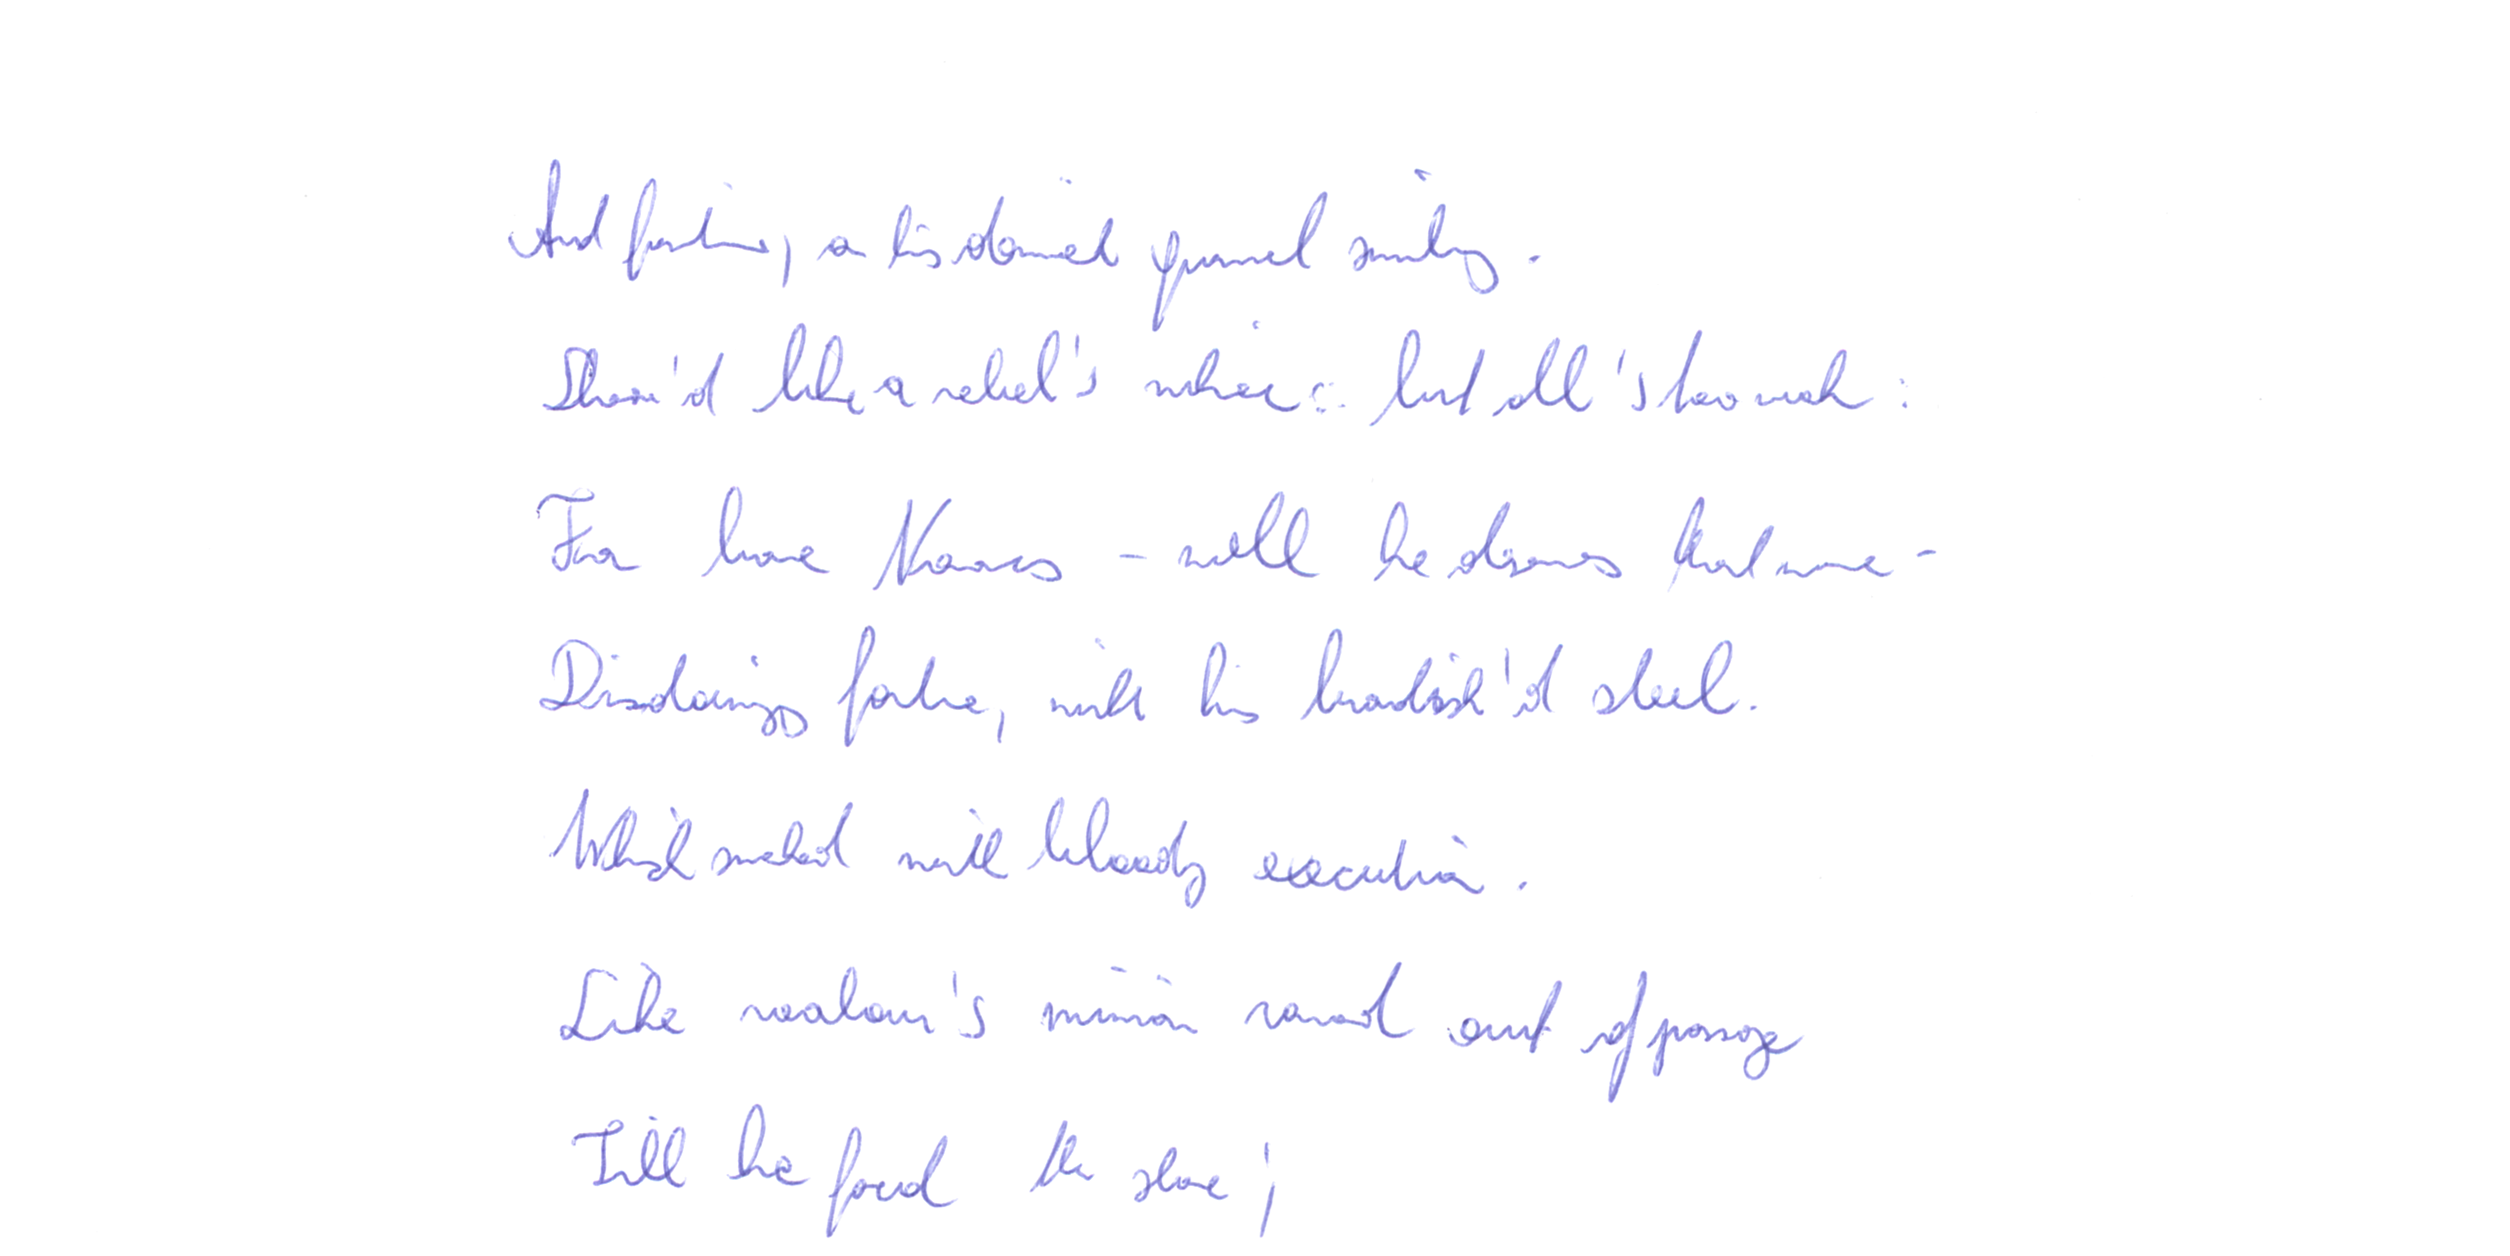 And fortune, on his damned quarrel smiling.
Show'd like a rebel's whore: but all's too weak:
For brave Macbeth - well he deserves that name -
Disdaining fortune, with his brandish'd steel.
Which smoked with bloody execution.
Like valour's minion carved out of passage
Till he faced the slave;